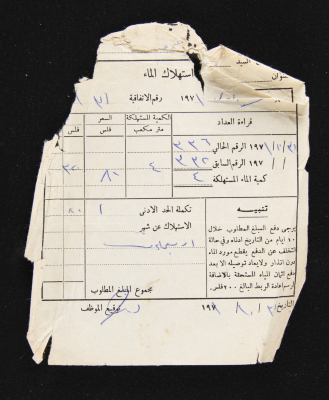 السيد
عنوان
استهلاك الماء
رقم الاتفاقية ١٩٧
قراءة العداد
الكمية المستهلكة
متر مكعب
السعر
فلس
فلس
١٩٧ الرقم الحالي ٣٣٦
١٩٧ الرقم السابق ٣٣٢
كمية الماء المستهلكة ٤
٤
٨٠
٣٢٠
تنبيه
يرجى دفع المبلغ المطلوب خلال
١٠ ايام من التاريخ ادناه وفي حالة
التخلف عن الدفع يقطع مورد الماء
دون انذار ولا يعاد توصيله الا بعد
دفع اثمان المياه المستحقة بالاضافة
لرسم اعادة الربط البالغ ٢٠٠ فلس.
تكملة الحد الادنى
الاستهلاك عن شهر
٨٠
مجموع المبلغ المطلوب
التاريخ
توقيع الموظف